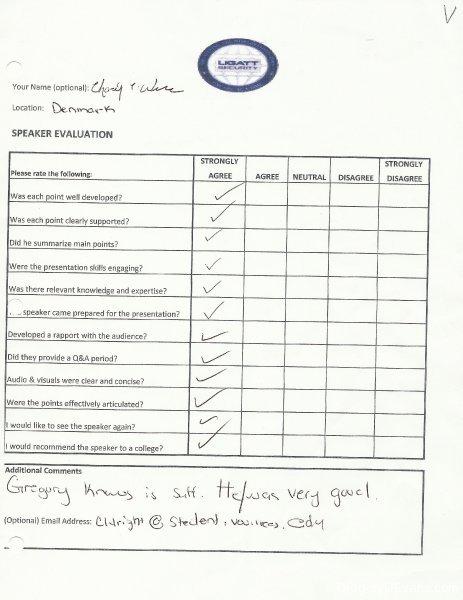 LIGATT
SECURITY
Your Name (optional):
Location: Denmark
SPEAKER EVALUATION
Please rate the following: STRONGLY AGREE AGREE NEUTRAL DISAGREE STRONGLY DISAGREE
Was each point well developed?
Was each point clearly supported?
Did he summarize main points?
Were the presentation skills engaging?
Was there relevant knowledge and expertise?
speaker came prepared for the presentation?
Developed a rapport with the audience?
Did they provide a Q&A period?
Audio & visuals were clear and concise?
Were the points effectively articulated?
I would like to see the speaker again?
I would recommend the speaker to a college?
Additional Comments
Gregory Knows is suff. He was very good.
(Optional) Email Address: @ Student. .edu